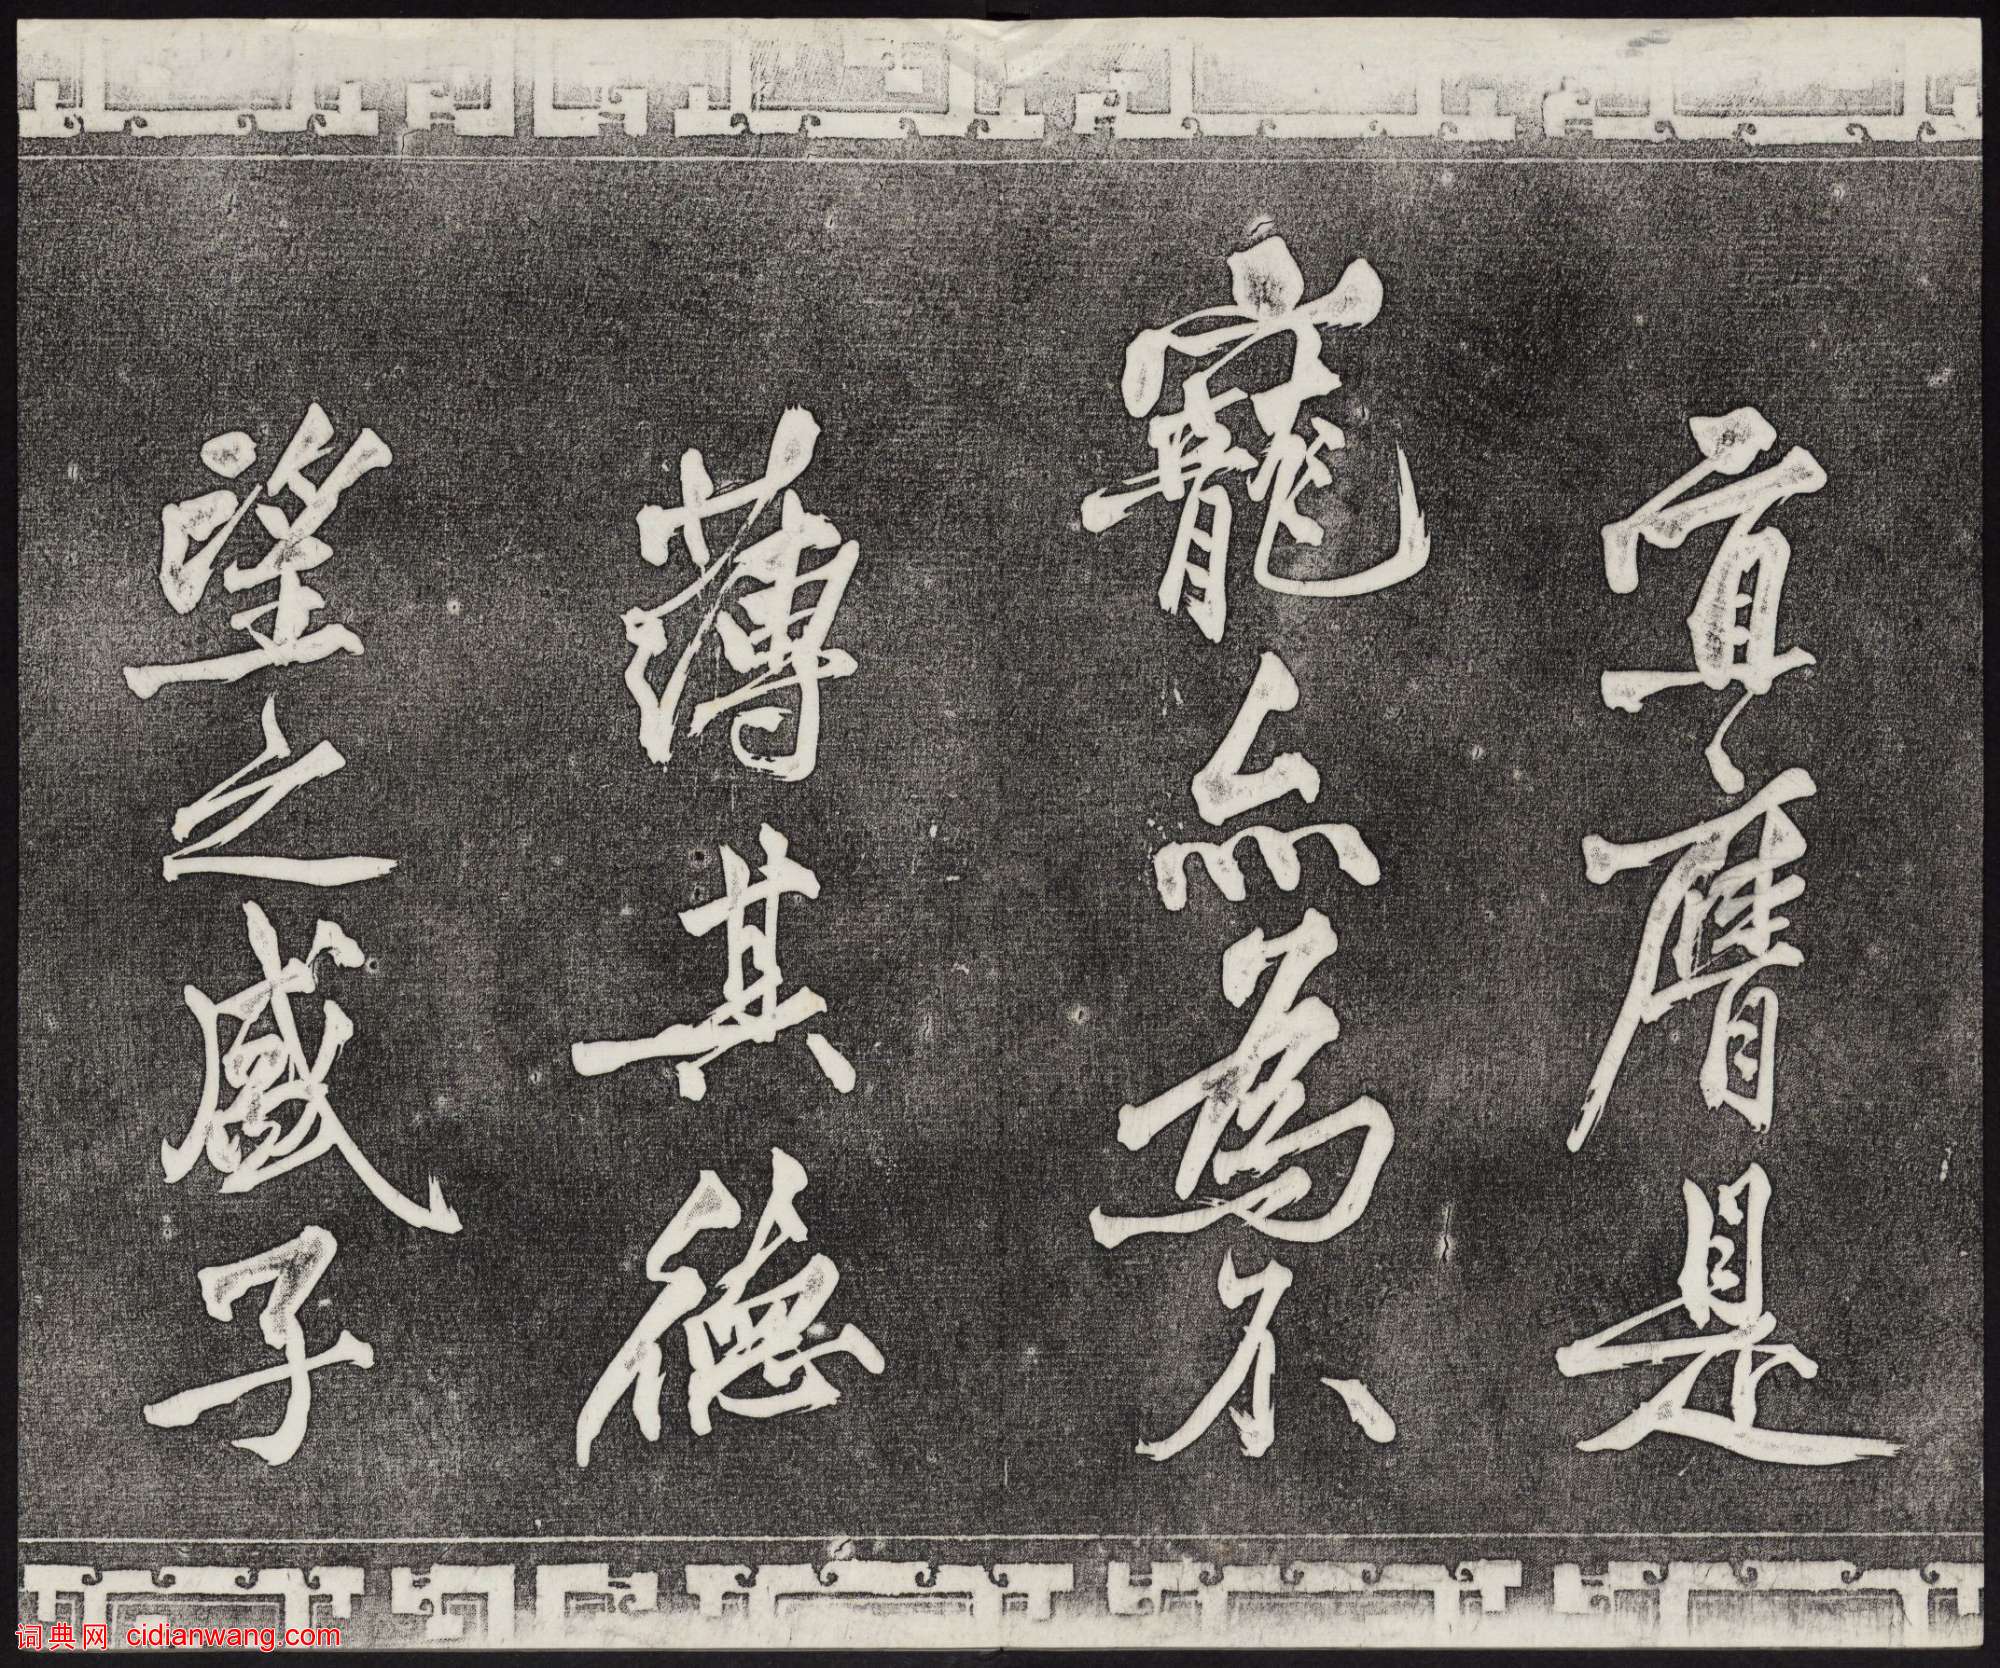 宜膺是
寵無為不
薄其德
望之盛子
词典网 cidianwang.com